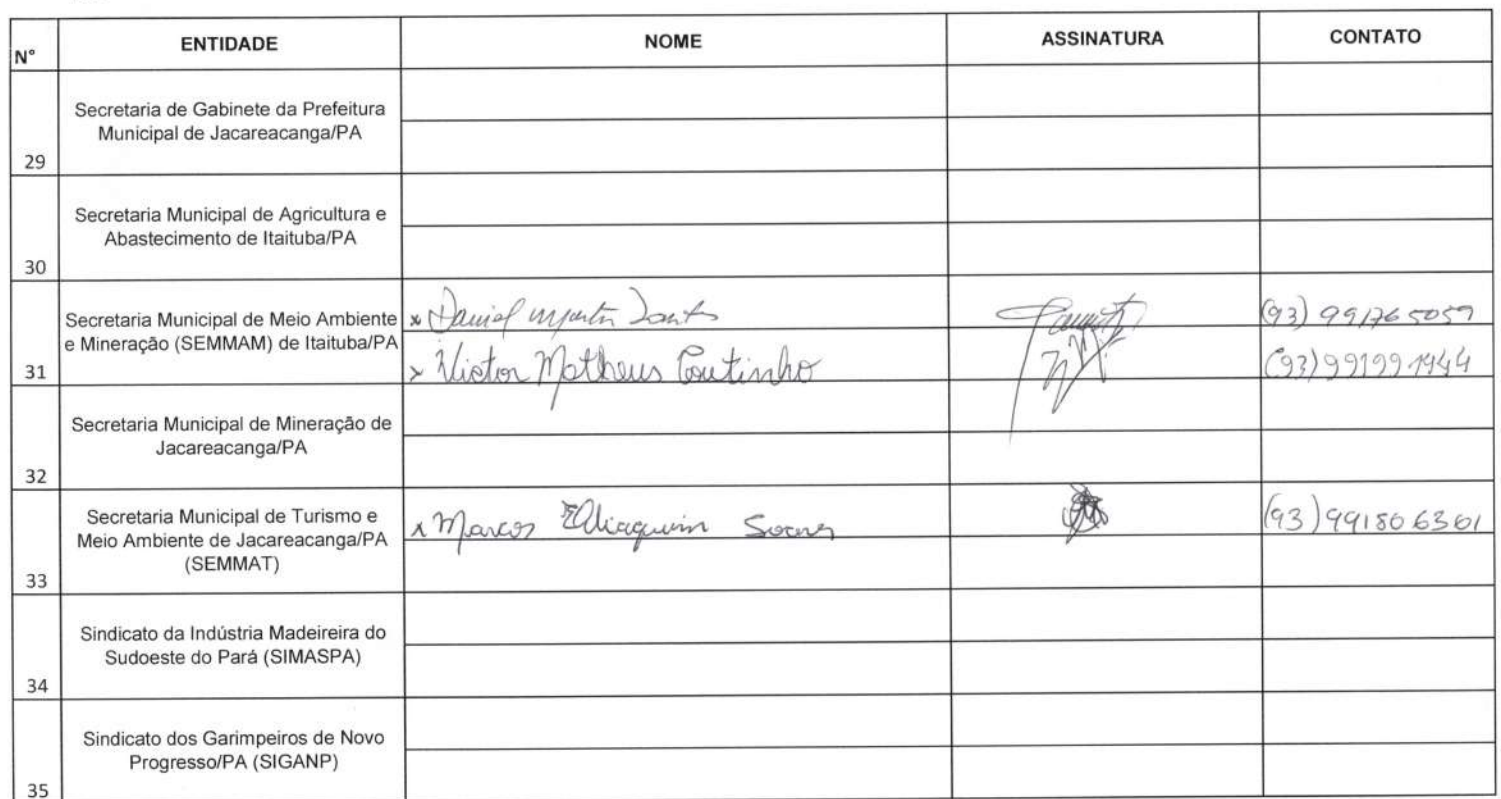 N° ENTIDADE NOME ASSINATURA CONTATO
Secretaria de Gabinete da Prefeitura
Municipal de Jacareacanga/PA
29
Secretaria Municipal de Agricultura e
Abastecimento de Itaituba/PA
30
Secretaria Municipal de Meio Ambiente
e Mineração (SEMMAM) de Itaituba/PA
31
x Daniel Santos (93) 991765059
x Victor Matheus Coutinho (93) 991991944
Secretaria Municipal de Mineração de
Jacareacanga/PA
32
Secretaria Municipal de Turismo e
Meio Ambiente de Jacareacanga/PA
(SEMMAT)
33
x Marcos Eliaquim Soares (93) 991806361
Sindicato da Indústria Madeireira do
Sudoeste do Pará (SIMASPA)
34
Sindicato dos Garimpeiros de Novo
Progresso/PA (SIGANP)
35